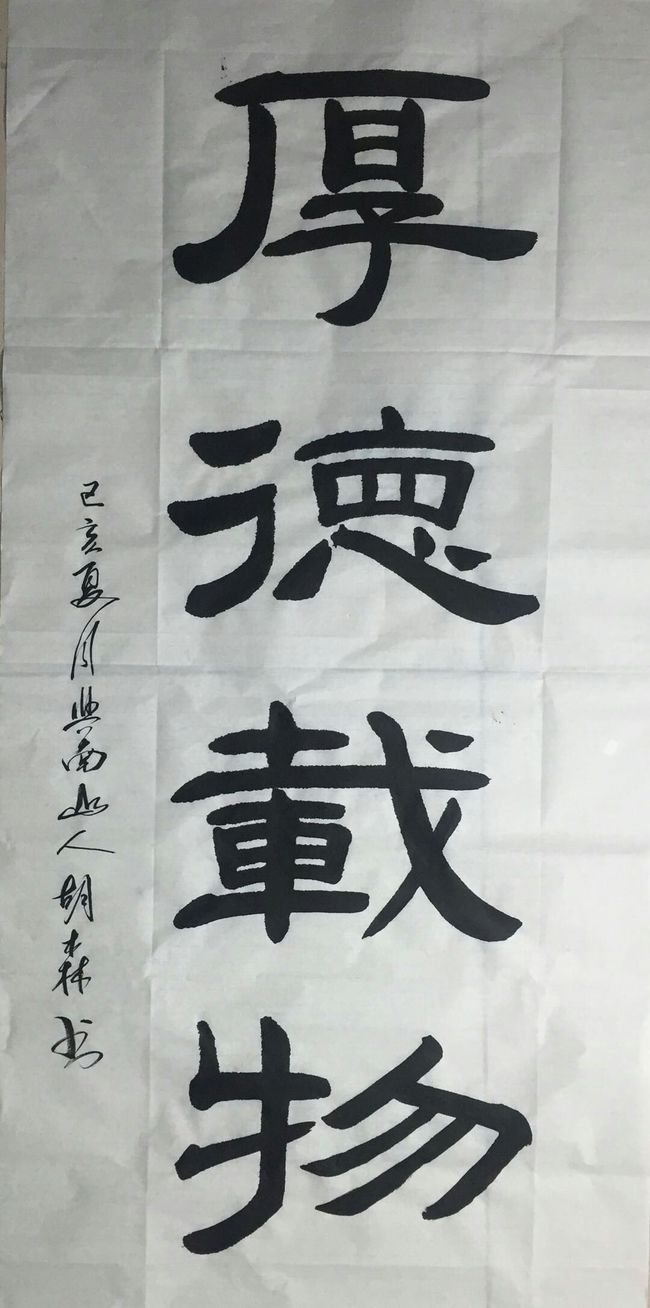 厚德載物
己亥夏月典南山人胡森书